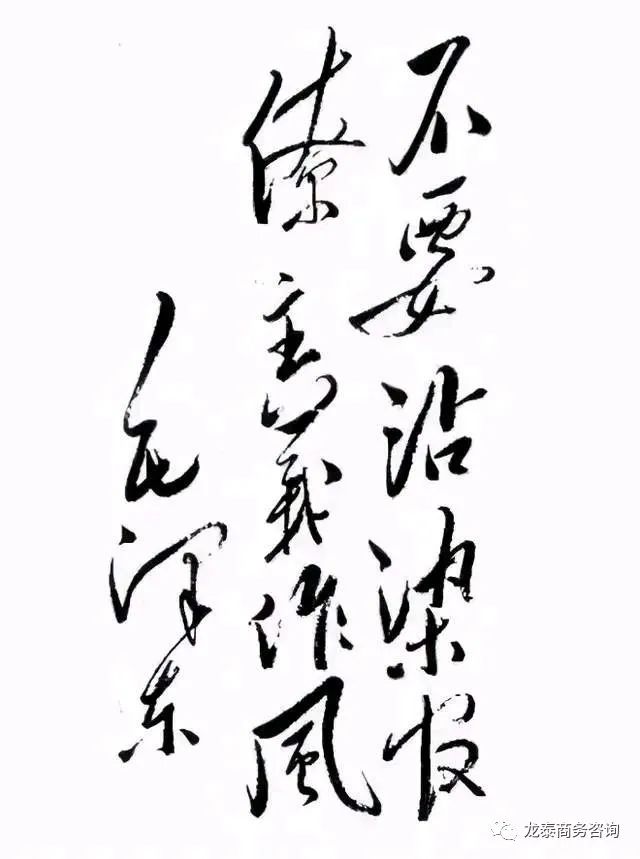 不要沾染官
僚主義作風
毛泽东
龙泰商务咨询